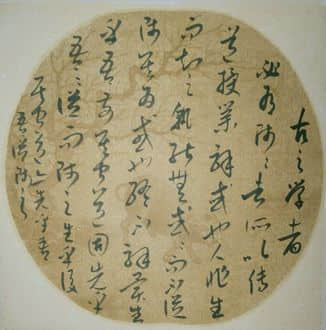 古之学者
必有师々者所以传
道授業解惑也人非生
而知之孰能無惑々而不從
师其為惑也終不解矣生
乎吾前其聞道也固先乎
吾々從而师之生乎後
其聞道也亦先乎吾
吾從师之